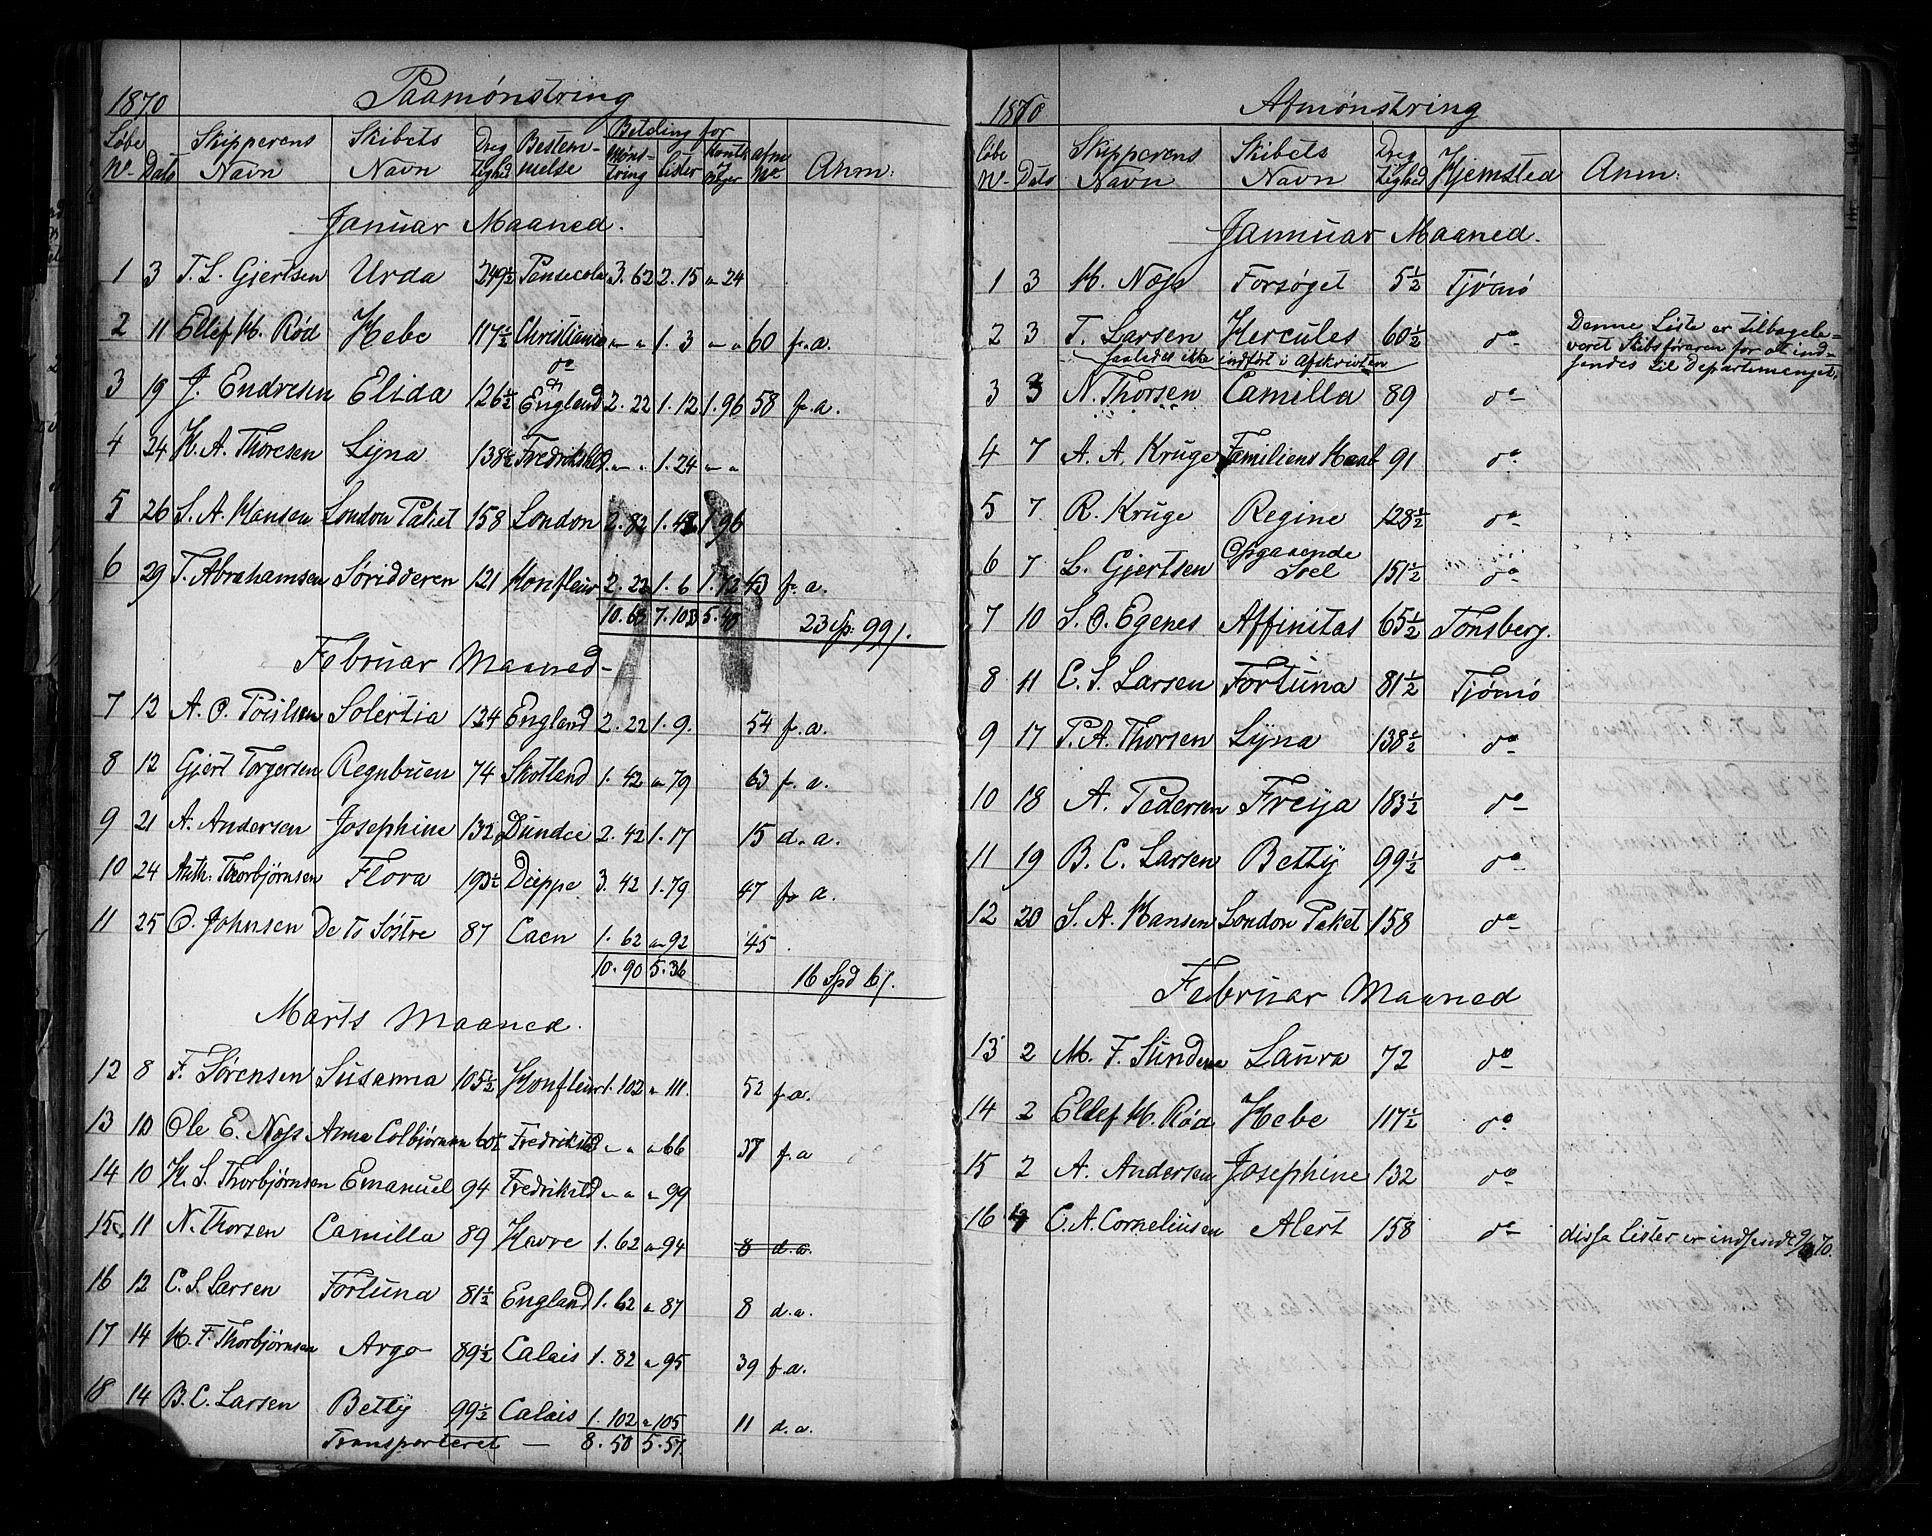 1870 Paamønstring
Løbe No. Dato Skipperens Navn Skibets Navn Dreg tighed Bestem- melse Betaling for Møns- tring Lister afm No. Anm:
Januar Maaned.
1 3 T. L. Gjertsen Urda 249½ Pensecola 3. 62 2. 15 " 24
2 11 Ellef H. Rød Hebe 117½ Christiania " " 1. 3 " " 60 f. a.
3 19 J. Endresen Elida 126½ do & England 2. 22 1. 12 1. 96 58 f. a.
4 24 H. A. Thoresen Lyna 138½ Fredrikshld " " 1. 24 " "
5 26 S. A. Hansen London Paket 158 London 2. 82 1. 43 1. 96
6 29 T. Abrahamsen Søridderen 121 Honfleur 2. 22 1. 6 1. 72 43 f. a.
10. 68 7. 103 5. 48 23 Sp: 99 ſ.
Februar Maaned
7 12 A. O. Poulsen Solertia 124 England 2. 22 1. 9. 54 f. a.
8 12 Gjert Torgersen Regnbuen 74 Skotland 1. 42 " 79 63 f. a.
9 21 A. Andersen Josephine 132 Dundee 2. 42 1. 17 15 d. a.
10 24 Anth. Thorbjørnsen Flora 193½ Dieppe 3. 42 1. 79 47 f. a.
11 25 O. Johnsen De to Søstre 87 Caen 1. 62 " 92 45
10. 90 5. 36 16 Spd 6 ſ.
Marts Maaned.
12 8 F. Sørensen Susanna 105½ Honfleur 1. 102 " 111. 52 f. a.
13 10 Ole E. Næss Anna Colbjørnsen 60½ Fredrikstad " " " 66 37 f. a
14 10 H. S. Thorbjørnsen Emanuel 94 Fredrikstd " " " 99
15. 11 N. Thorsen Camilla 89 Havre 1. 62 " 94 8 d. a.
16 12 C. S. Larsen Fortuna 81½ England 1. 62 " 87 8 d. a.
17 14 H. F. Thorbjørnsen Argo 89½ Calais 1. 82 " 95 39 f. a.
18 14 B. C. Larsen Betty 99½ Calais 1. 102 " 105 11 d. a.
Transporteret — 8. 50 5. 57.
1870 Afmønstring
Løbe No. Dato Skipperens Navn Skibets Navn Dreg tighed Hjemsted Anm:
Januar Maaned.
1 3 H. Næss Forsøget 5½ Tjømø
2 3 T. Larsen Hercules 60½ do Denne Liste er tilbagele- veret Skibsføreren for at ind- sendes til Departementet.
saaledes ikke indført i Afskriften
3 3 N. Thorsen Camilla 89 do
4 7 A. A. Kruge Familiens Haab 91 do
5 7 R. Kruge Regine 128½ do
6 7 L. Gjertsen Opgaaende Soel 151½ do
7 10 S. O. Egenes Affinitas 65½ Tønsberg.
8 11 C. S. Larsen Fortuna 81½ Tjømø
9 17 P. A. Thorsen Lyna 138½ do
10 18 A. Pedersen Freya 183½ do
11 19 B. C. Larsen Betty 99½ do
12 20 S. A. Hansen London Paket 158 do
Februar Maaned
13 2 M. F. Sundene Laura 72 do
14 2 Ellef H. Rød Hebe 117½ do
15 2 A. Andersen Josephine 132 do
16 C. A. Corneliusen Alert 158 do disse Lister er indsendt 70.